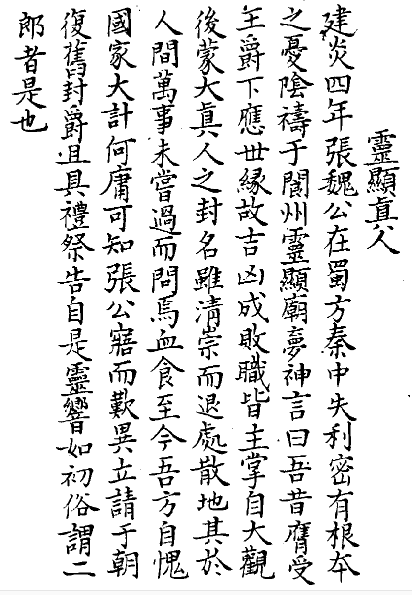 靈顯眞人
建炎四年張魏公在蜀方秦中失利密有根本
之憂陰禱于閬州靈顯廟夢神言曰吾昔膺受
王爵下應世緣故吉凶成敗職皆主掌自大觀
後蒙大眞人之封名雖淸崇而退處散地其於
人間萬事未嘗過而問焉血食至今吾方自愧
國家大計何庸可知張公寤而歎異立請于朝
復舊封爵且具禮祭告自是靈響如初俗謂二
郎者是也